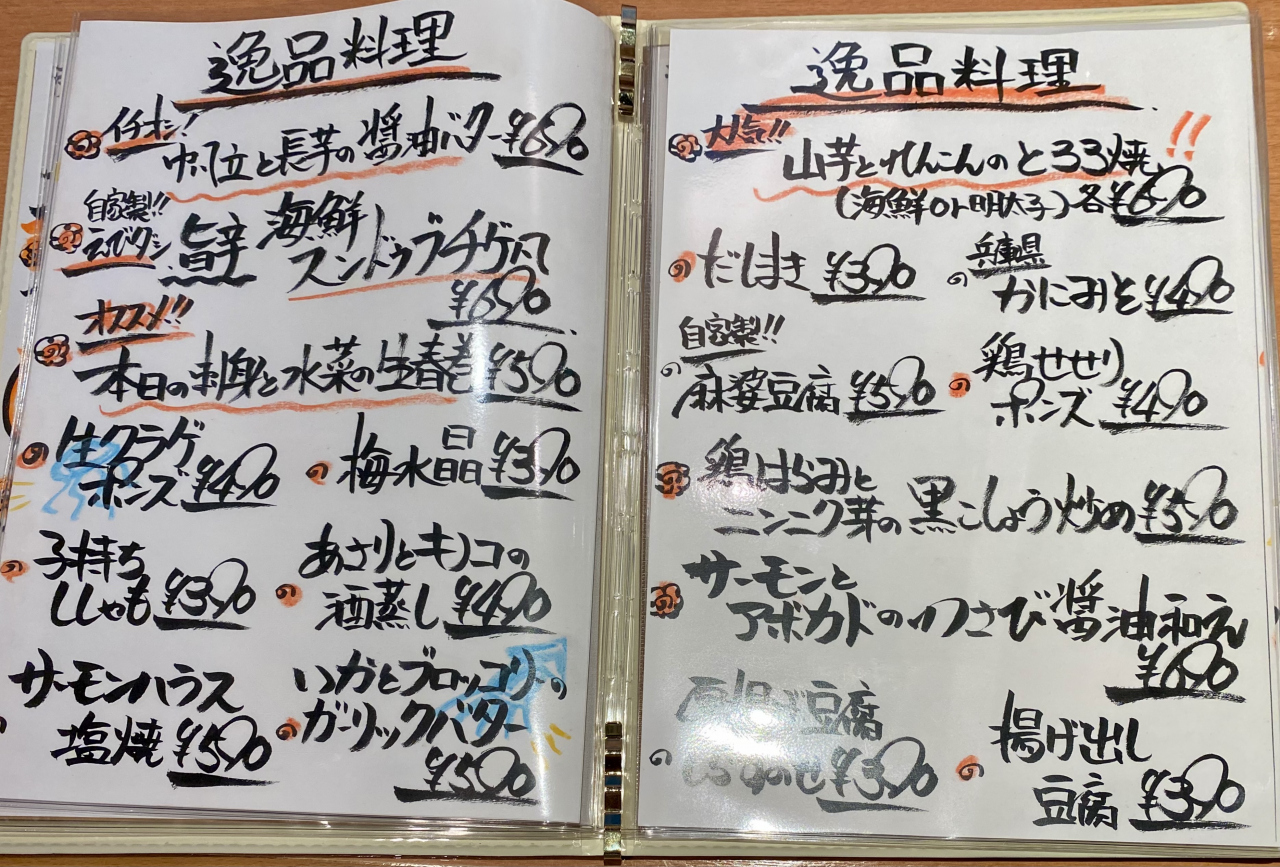 逸品料理
イチオシ!
帆立と長芋の醤油バター ¥690
自家製!!
えびダシ
旨辛 海鮮
スンドゥブチゲ風
¥690
オススメ!!
本日の刺身と水菜の生春巻 ¥590
生クラゲ
ポンズ ¥490
梅水晶 ¥390
子持ち
ししゃも ¥390
あさりとキノコの
酒蒸し ¥490
サーモンハラス
塩焼 ¥590
いかとブロッコリーの
ガーリックバター
¥590
逸品料理
大人気!!
山芋とれんこんのとろろ焼 !!
(海鮮or明太子)各¥690
だしまき ¥390
兵庫県
かにみそ ¥490
自家製!!
麻婆豆腐 ¥590
鶏せせり
ポンズ ¥490
鶏はらみと
ニンニク芽の黒こしょう炒め ¥590
サーモンと
アボカドのわさび醤油和え
¥690
豆腐
¥390
揚げ出し
豆腐 ¥390